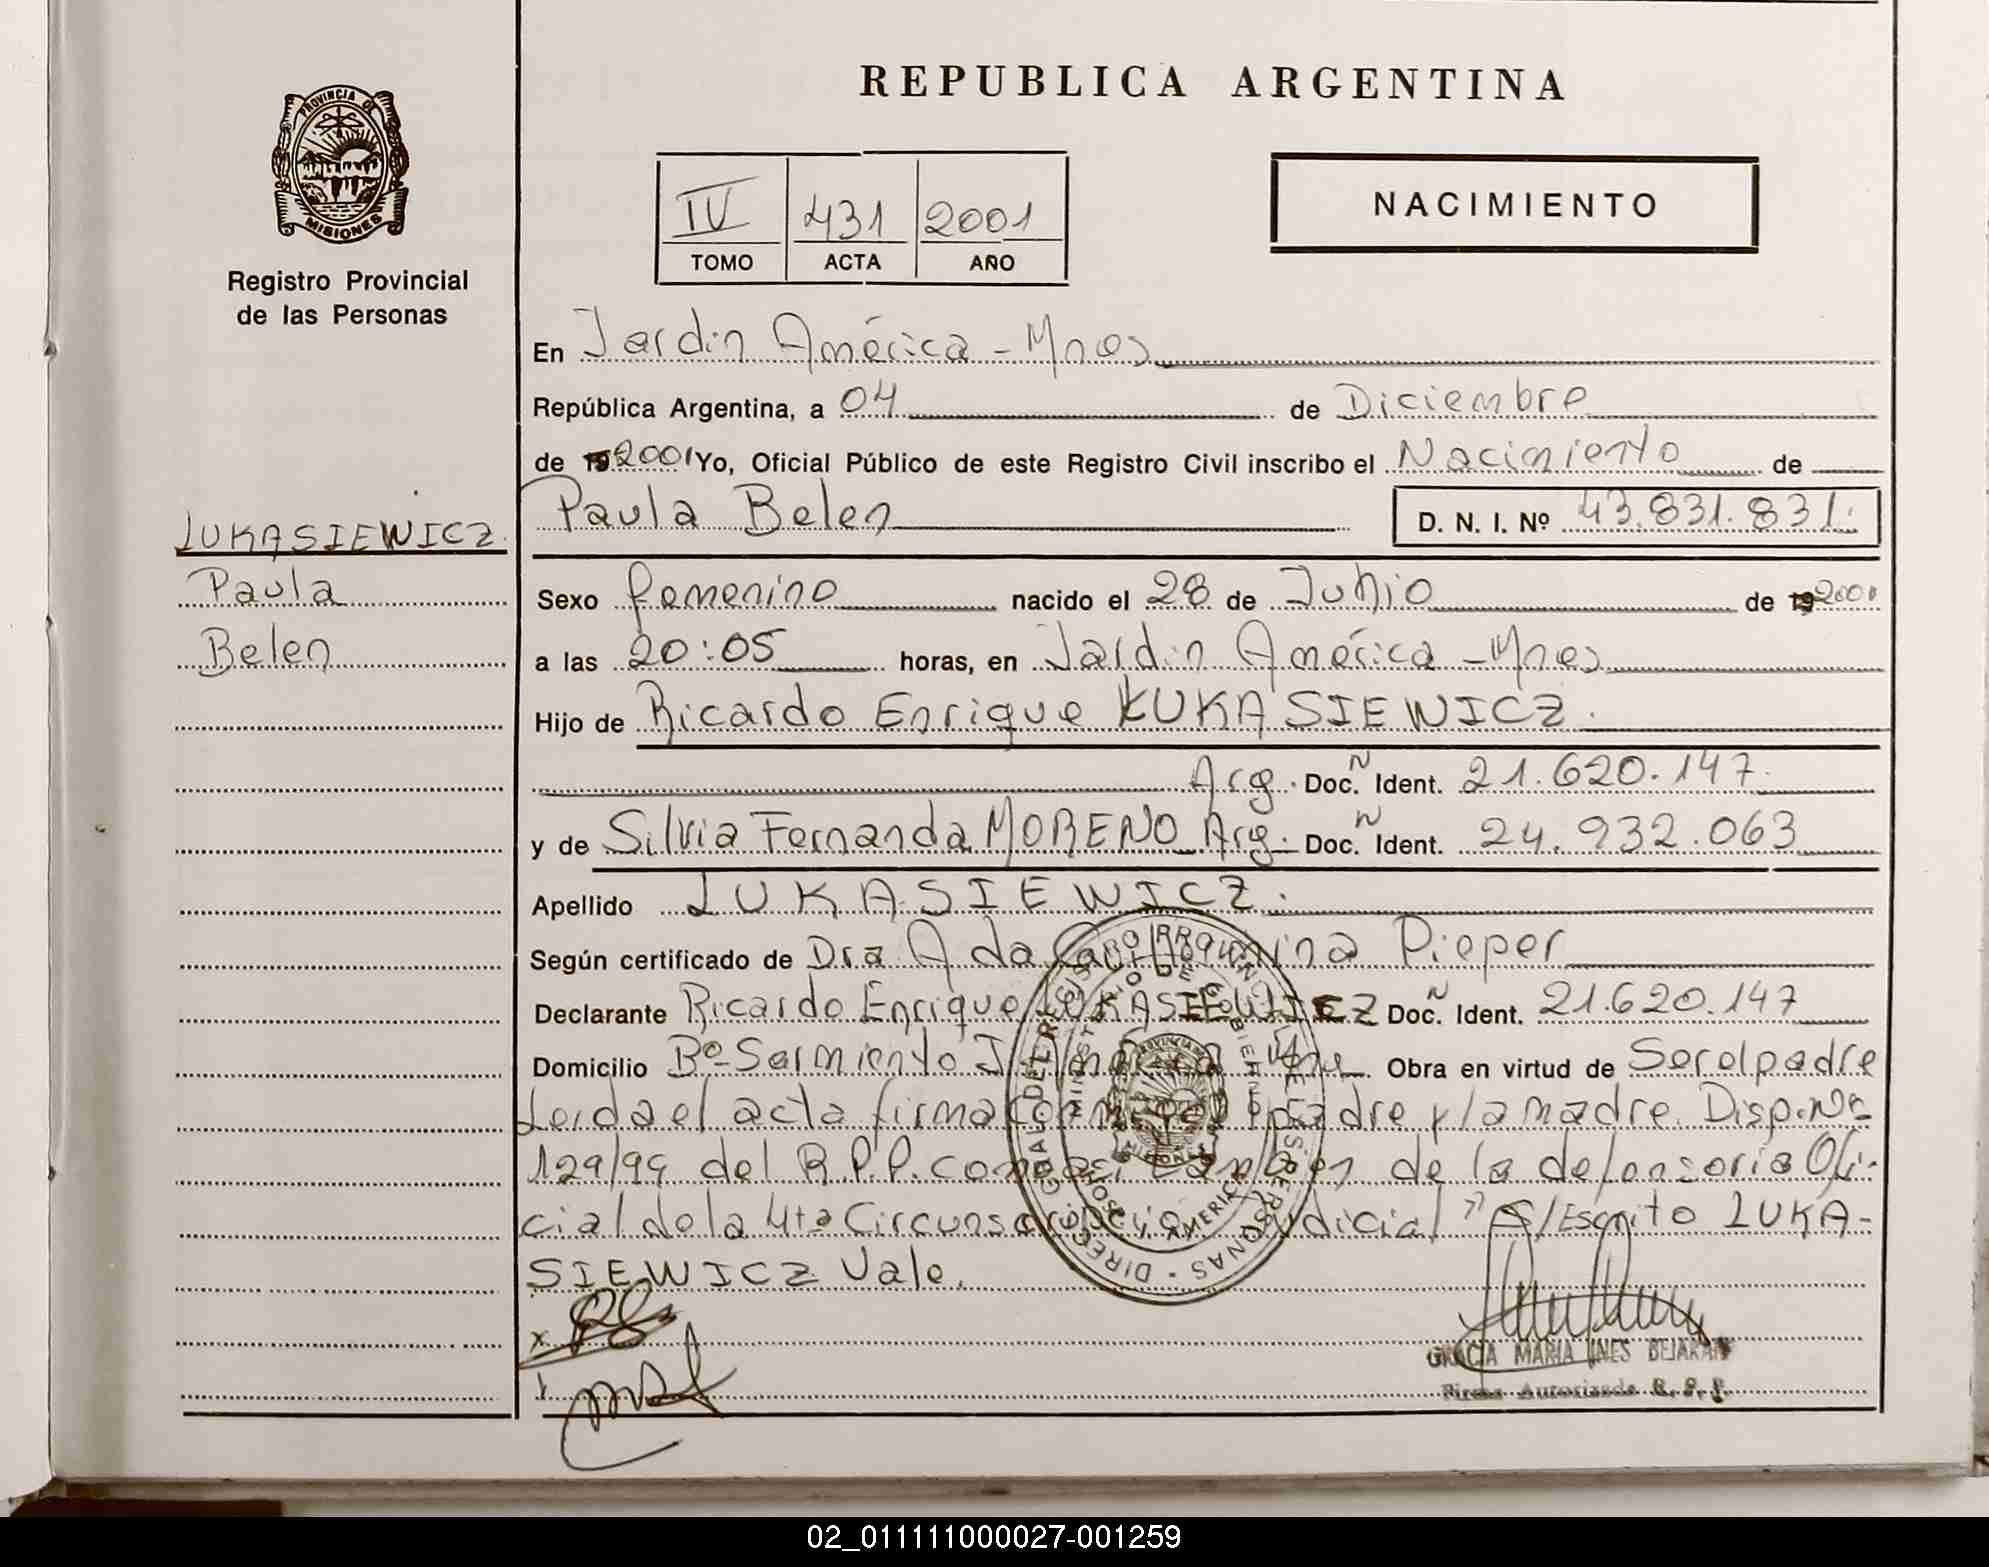 REPUBLICA ARGENTINA
PROVINCIA DE
MISIONES
Registro Provincial
de las Personas
IV 431 2001
TOMO ACTA AÑO
NACIMIENTO
En Jardin América - Mnes
República Argentina, a 04 de Diciembre
de 19 2001 Yo, Oficial Público de este Registro Civil inscribo el Nacimiento de
Paula Belen D. N. I. Nº 43.831.831.
LUKASIEWICZ.
Paula
Belen
Sexo femenino nacido el 28 de Junio de 19 2001
a las 20:05 horas, en Jardin América - Mnes
Hijo de Ricardo Enrique LUKASIEWICZ.
Arg. Doc. N Ident. 21.620.147.
y de Silvia Fernanda MORENO Arg. Doc. N Ident. 24.932.063
Apellido LUKASIEWICZ.
Según certificado de Dra Ada Pieper
Declarante Ricardo Enrique LUKASIEWICZ Doc. N Ident. 21.620.147
Domicilio Bº Sarmiento J. América Mne Obra en virtud de Serelpadre
Leida el acta firma conmigo el padre y la madre. Disp. Nr
129/99 del R.P.P. como asi tambien de la defensoria Ofi-
cial de la 4ta Circunscripcion Judicial" S/Escrito LUKA-
SIEWICZ Vale.
GRACIA MARIA INES BEJARAN
Firma Autorizada R. P. P.
02_011111000027-001259